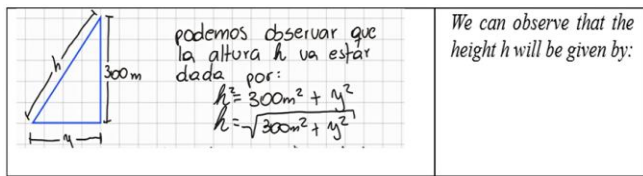 h
300m
y
podemos observar que
la altura h va estar
dada por:
h² = 300m² + y²
h = √300m² + y²
We can observe that the
height h will be given by: